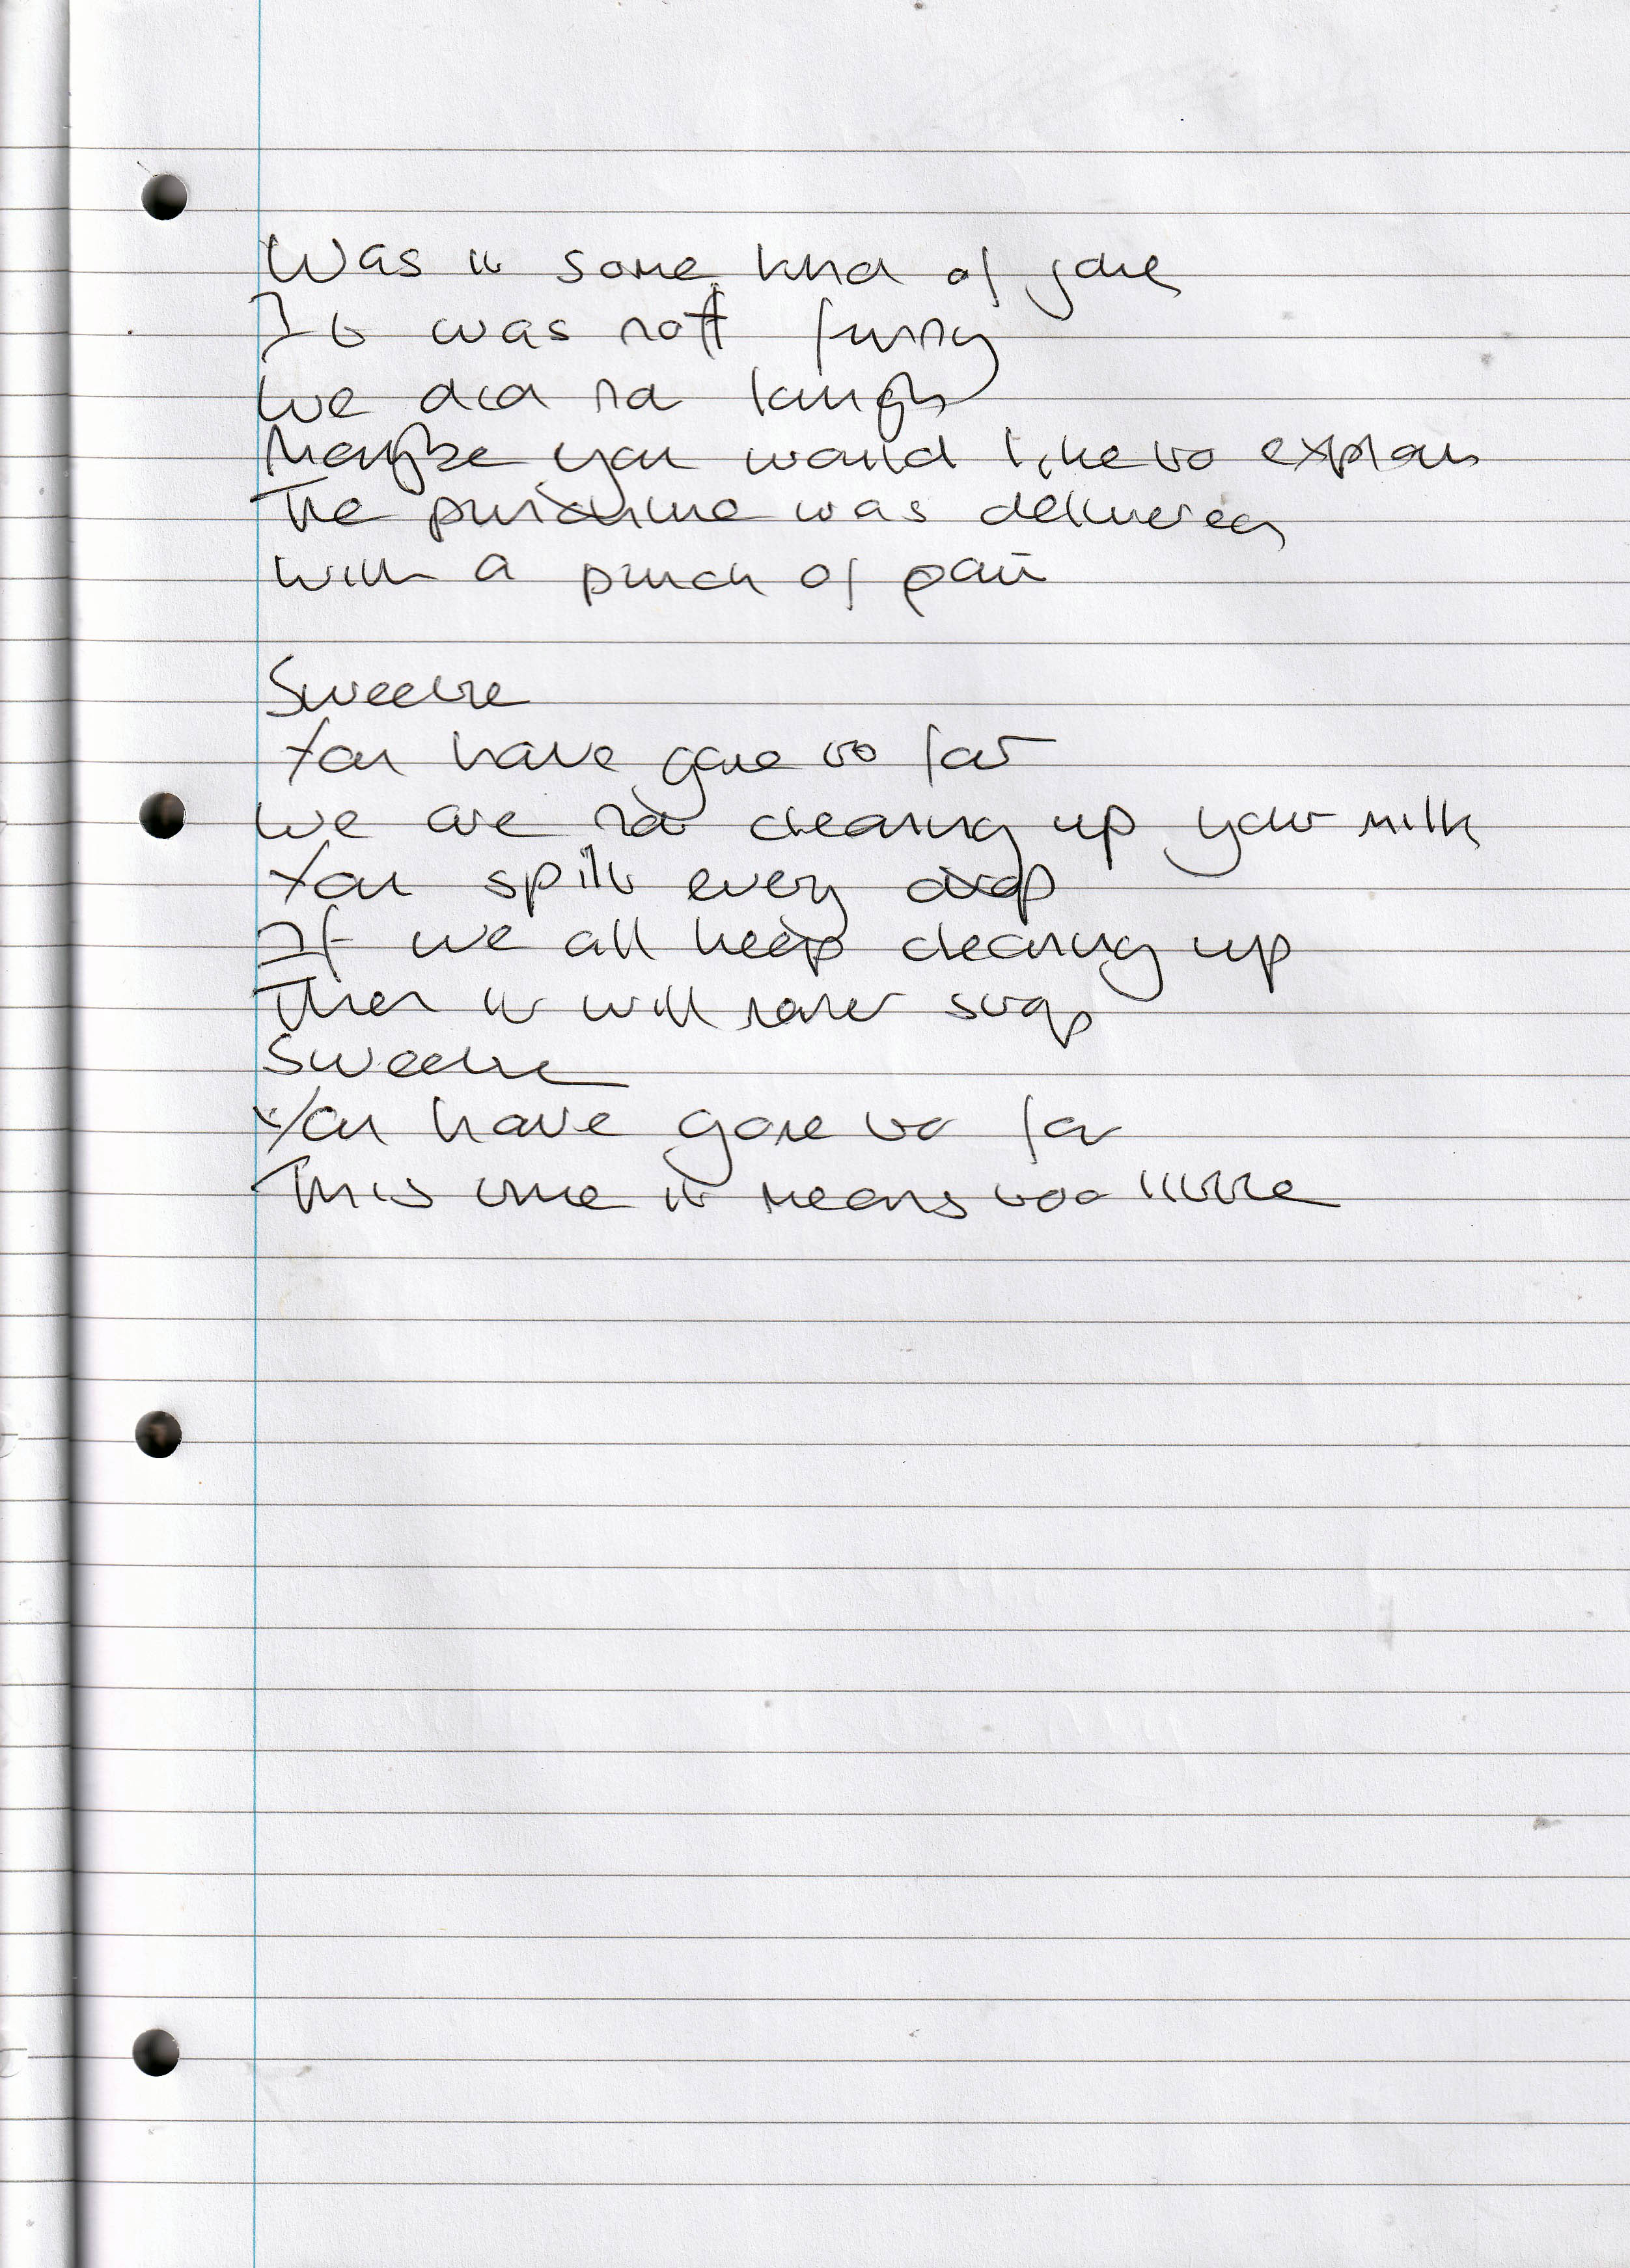 Was it some kind of joke
It was not funny
We did not laugh
Maybe you would like to explain
The punchline was delivered
With a punch of pain
Sweetie
You have gone to far
We are not cleaning up your milk
You spilt every drop
If we all keep cleaning up
Then it will never stop
Sweetie
You have gone to far
This time it means too little